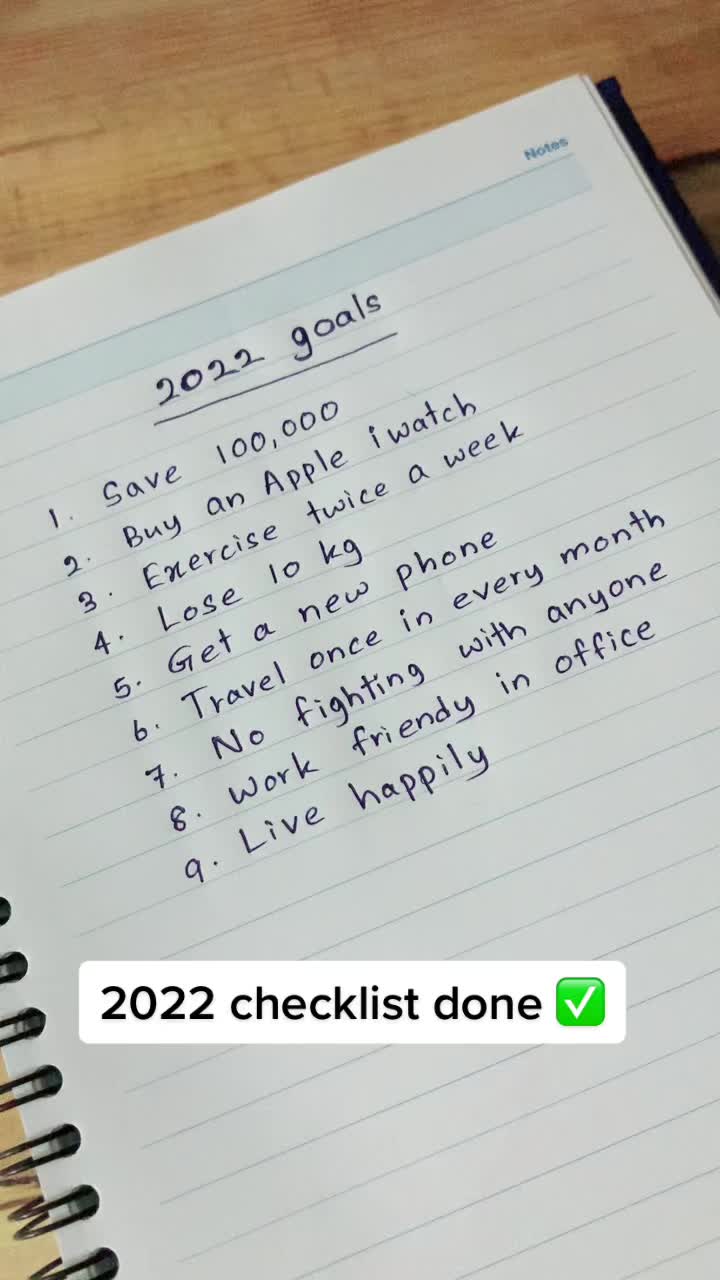 Notes
2022 goals
1. Save 100,000
2. Buy an Apple iwatch
3. Exercise twice a week
4. Lose 10 kg
5. Get a new phone
6. Travel once in every month
7. No fighting with anyone
8. Work friendy in office
9. Live happily
2022 checklist done ✅